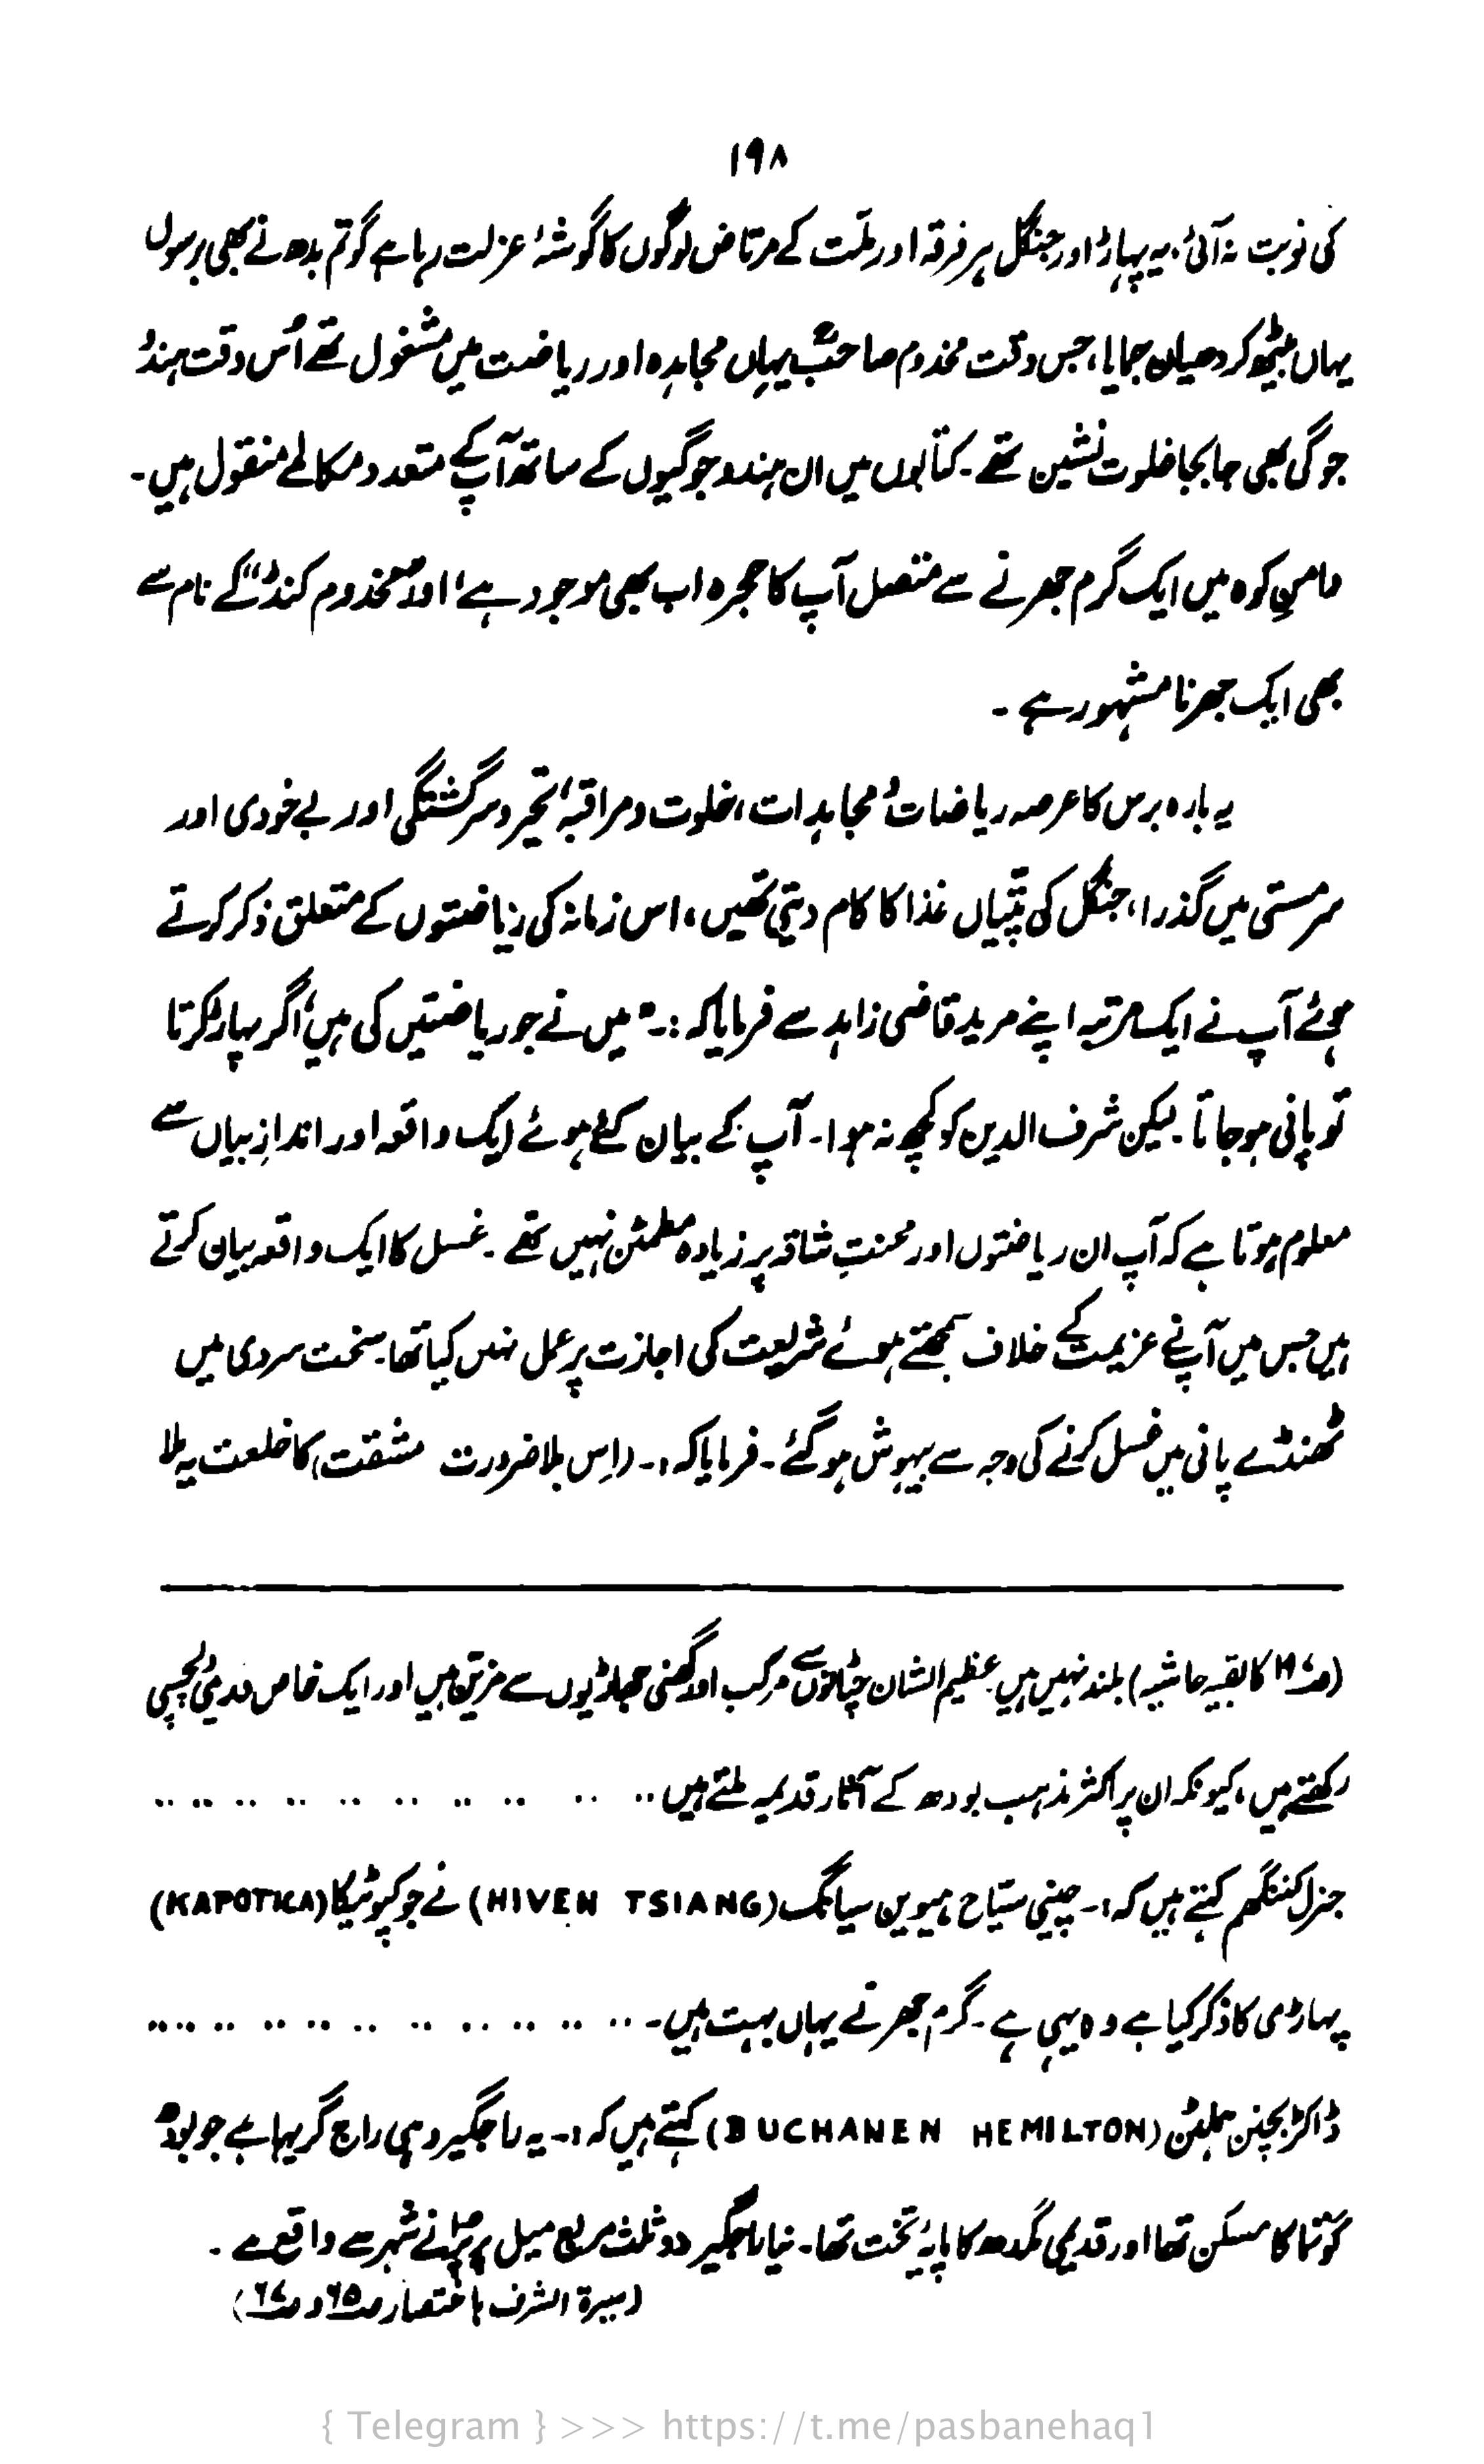 ۱۹۸
کی نوبت نہ آئی، یہ پہاڑ اور جنگل ہر فرقہ اور ملّت کے مرتاض لوگوں کا گوشۂ عزلت رہا ہے گوتم بدھ نے بھی برسوں
یہاں بیٹھ کر دھیان جمایا، جس وقت مخدوم صاحبؒ یہاں مجاہدہ اور ریاضت میں مشغول تھے اُس وقت ہندو
جوگی بھی جابجا خلوت نشین تھے۔ کتابوں میں ان ہندو جوگیوں کے ساتھ آپ کے متعدد مکالمے منقول ہیں۔
دامنِ کوہ میں ایک گرم جھرنے سے متصل آپ کا حجرہ اب بھی موجود ہے، اور "مخدوم کنڈ" کے نام سے
بھی ایک جھرنا مشہور ہے ۔
یہ بارہ برس کا عرصہ ریاضات و مجاہدات، خلوت و مراقبہ، تحیر و سرگشتگی اور بے خودی اور
سرمستی میں گذرا، جنگل کی پتّیاں غذا کا کام دیتی تھیں، اس زمانہ کی ریاضتوں کے متعلق ذکر کرتے
ہوئے آپ نے ایک مرتبہ اپنے مرید قاضی زاہد سے فرمایا کہ :۔ "میں نے جو ریاضتیں کی ہیں، اگر پہاڑ کرتا
تو پانی ہو جاتا۔ لیکن شرف الدین کو کچھ نہ ہوا۔ آپ کے بیان کئے ہوئے ایک واقعہ اور اندازِ بیاں سے
معلوم ہوتا ہے کہ آپ ان ریاضتوں اور محنتِ شاقہ پر زیادہ مطمئن نہیں تھے ۔ غسل کا ایک واقعہ بیان کرتے
ہیں جس میں آپ نے عزیمت کے خلاف سمجھتے ہوئے شریعت کی اجازت پر عمل نہیں کیا تھا۔ سخت سردی میں
ٹھنڈے پانی میں غسل کرنے کی وجہ سے بیہوش ہو گئے ۔ فرمایا کہ :۔ (اِس بلا ضرورت مشقت) کا خلعت یہ ملا
(کا بقیہ حاشیہ) بلند نہیں ہیں عظیم الشان چٹانوں سے مرکب اور گھنی جھاڑیوں سے مزیّن ہیں اور ایک خاص قدیمی دلچسپی
رکھتے ہیں، کیونکہ ان پر اکثر مذہب بودھ کے آثار قدیمہ ملتے ہیں .. .. .. .. .. .. .. .. .. ..
جنرل کننگھم کہتے ہیں کہ :۔ چینی سیّاح ہیوین سیانگ (HIVEN TSIANG) نے جو کپوٹیکا (KAPOTKA)
پہاڑی کا ذکر کیا ہے وہ یہی ہے ۔ گرم جھرنے یہاں بہت ہیں ۔ .. .. .. .. .. .. .. .. .. ..
ڈاکٹر بچنن ہملٹن (BUCHANEN HEMILTON) کہتے ہیں کہ :۔ یہ راجگیر وہی راج گریہا ہے جو بودھ
گوتما کا مسکن تھا اور قدیمی مگدھ کا پایۂ تخت تھا۔ نیا راجگیر دو ثلث مربع میل پر پرانے شہر سے واقع ہے ۔
(سیرۃ الشرف باختصار ص۶۵ و ص۶۷)
{ Telegram } >>> https://t.me/pasbanehaq1